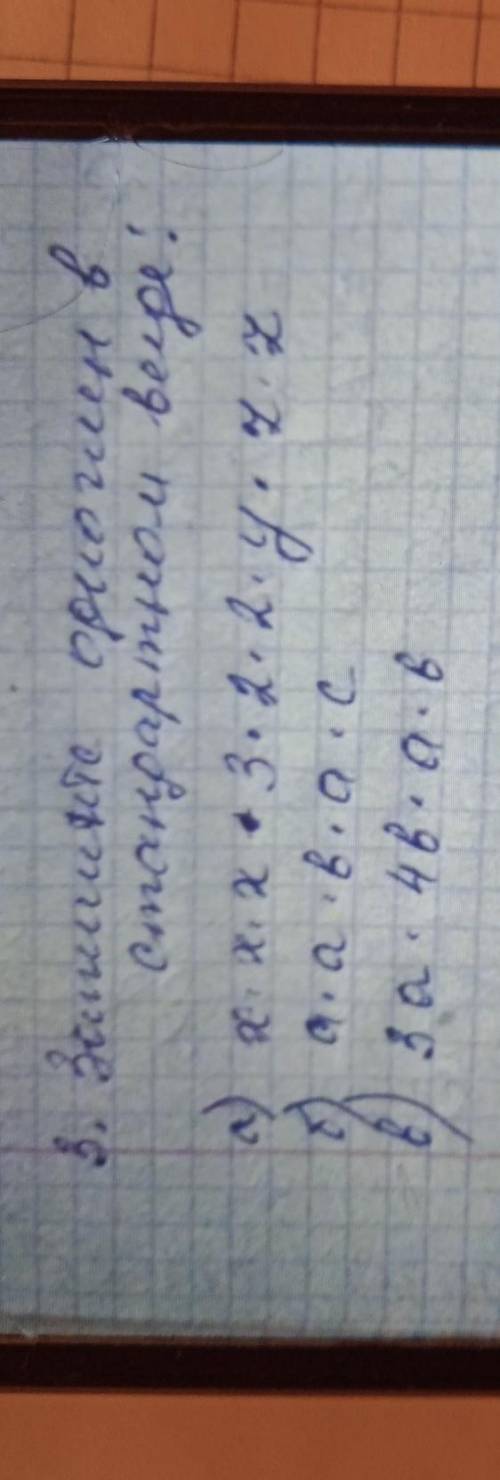 3. Запишите одночлен в
стандартном виде:
а) x · x · x · 3 · 2 · 2 · y · z · z
б) a · a · b · a · c
в) 3a · 4b · a · b